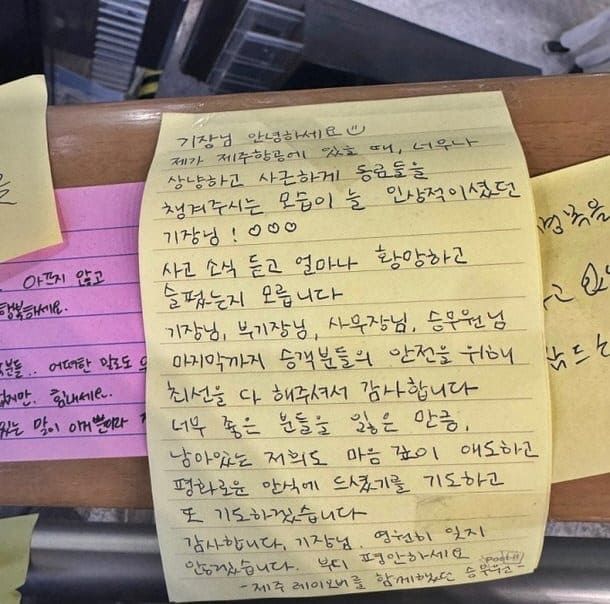 기장님 안녕하세요
제가 제주항공에 있을 때, 너무나
상냥하고 사근하게 동료들을
챙겨주시는 모습이 늘 인상적이셨던
기장님! ♡♡♡
사고 소식 듣고 얼마나 황망하고
슬펐는지 모릅니다
기장님, 부기장님, 사무장님, 승무원님
마지막까지 승객분들의 안전을 위해
최선을 다 해주셔서 감사합니다
너무 좋은 분들을 잃은 만큼,
남아있는 저희도 마음 깊이 애도하고
평화로운 안식에 드셨기를 기도하고
또 기도하겠습니다
감사합니다, 기장님. 영원히 잊지
않겠습니다. 부디 평안하세요
-제주 레이오버를 함께했던 승무원-
을
아프지 않고
행복하세요.
분들.. 어떠한 말로도
없지만, 힘내세요.
있는 말이 이거 뿐이라
고